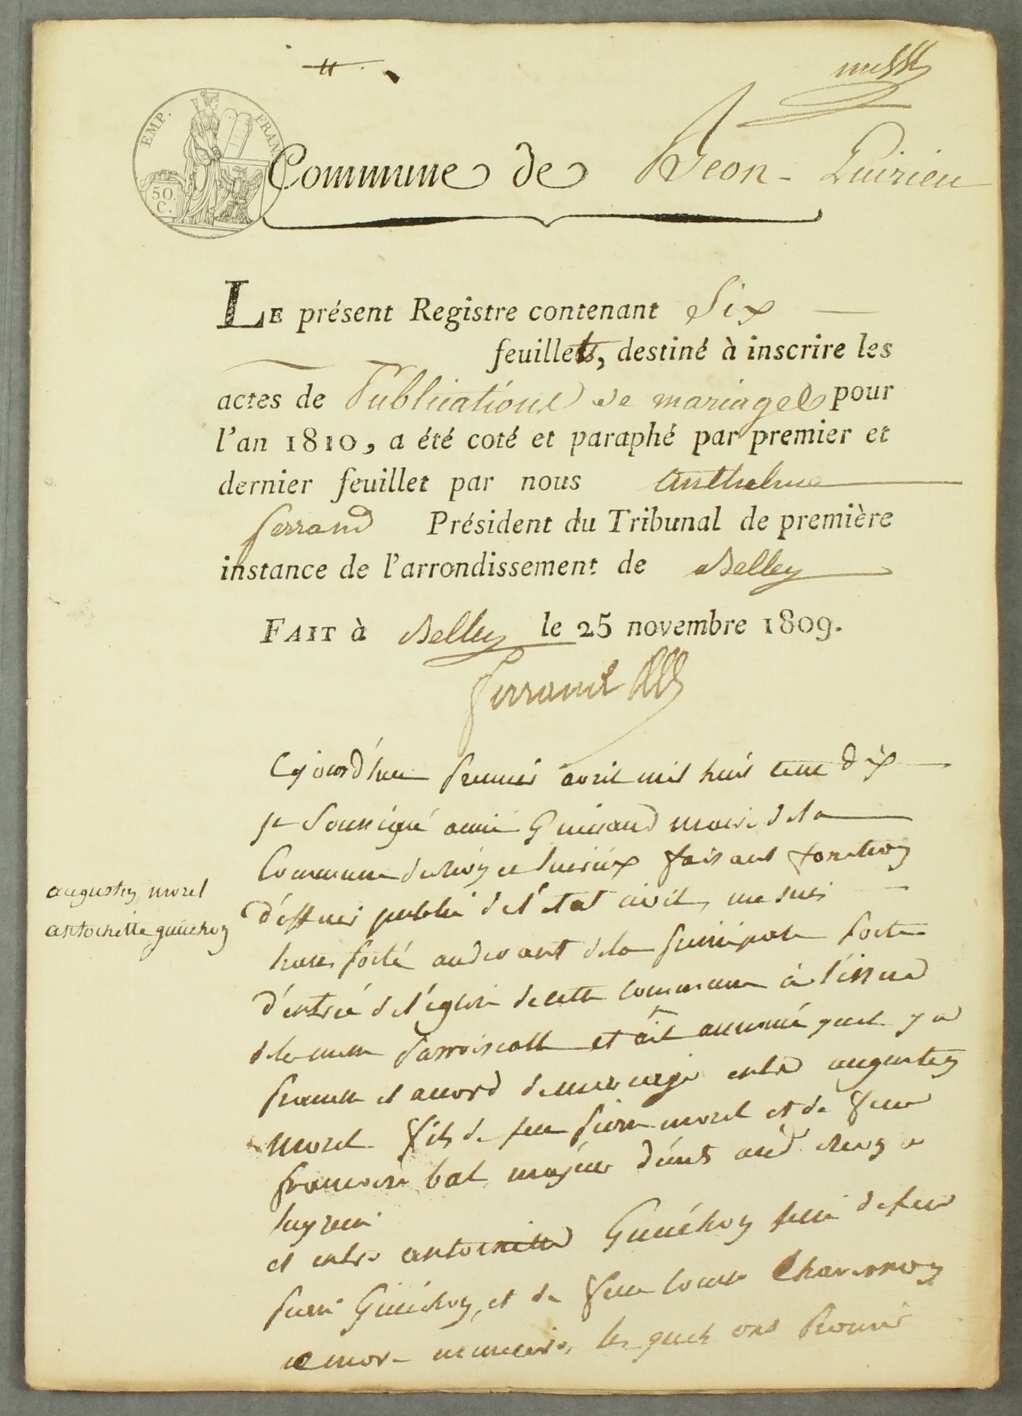 EMP. FRAN
50 C.
Commune de Reon-Luirieu
LE présent Registre contenant Six
feuillets, destiné à inscrire les
actes de Publications de mariages pour
l'an 1810, a été coté et paraphé par premier et
dernier feuillet par nous Anthelme
ferrand Président du Tribunal de première
instance de l'arrondissement de Belley
FAIT à Belley le 25 novembre 1809.
ferrand
Cejourd'hui premier avril mil huit cent dix
je soussigné Guinand maire de la
Commune faisant fonction
d'officier public de l'etat civil, me suis
transporté audevant de la principale porte
d'entrée de l'église de cette commune à l'issue
de la messe parroissialle et ait annoncé quil y a
promesse et accord de mariage entre augustin
morel fils de feu pierre morel et de feue
françoise bal majeur
et entre antoinette Guichon fille de feu
pierre Guichon, et de feue
les quels ont
augustin morel
antoinette guichon